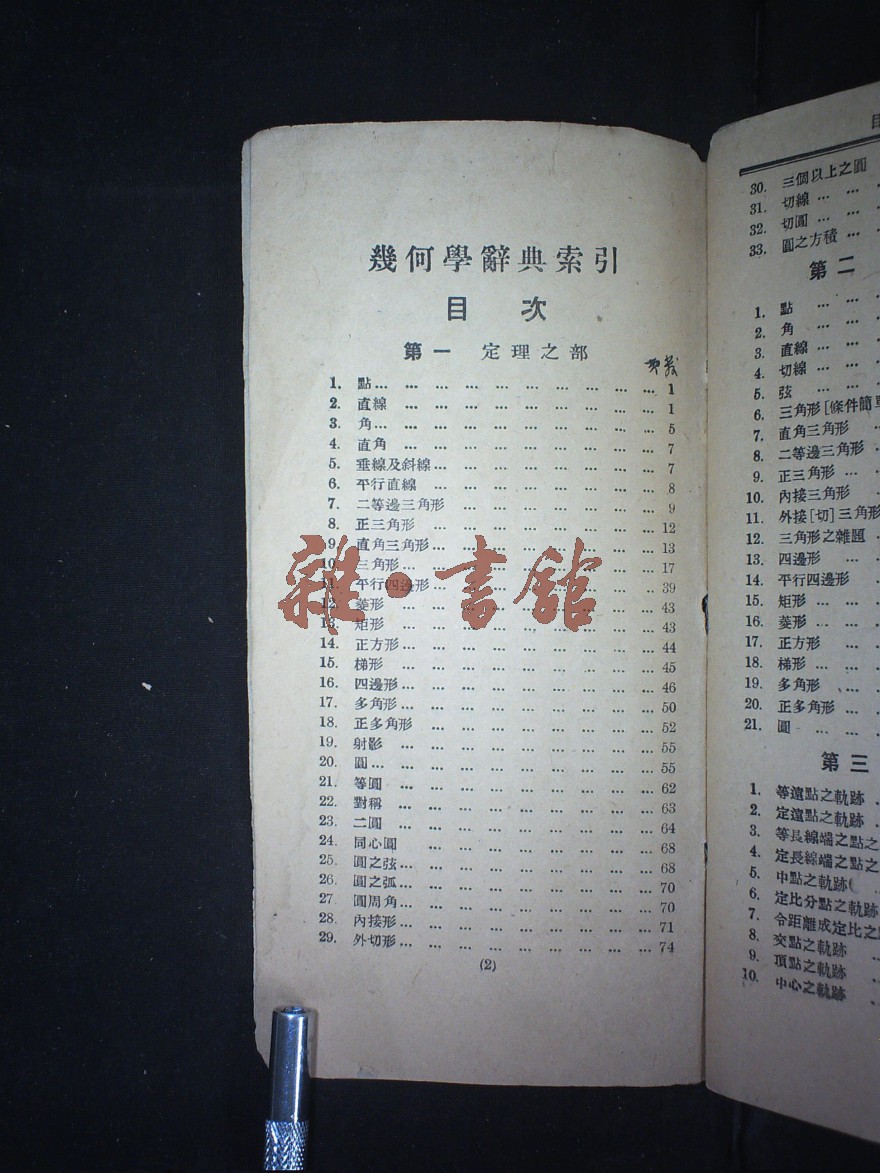 幾何學辭典索引
目 次
第一 定理之部
1. 點… … … … … … … … … … 1
2. 直線 … … … … … … … … … 1
3. 角… … … … … … … … … … 5
4. 直角 … … … … … … … … … 7
5. 垂線及斜線… … … … … … … … 7
6. 平行直線 … … … … … … … … 8
7. 二等邊三角形 … … … … … … … 9
8. 正三角形 … … … … … … … … 12
9. 直角三角形… … … … … … … … 13
10. 三角形… … … … … … … … … 17
11. 平行四邊形… … … … … … … … 39
12. 菱形 … … … … … … … … … 43
13. 矩形 … … … … … … … … … 43
14. 正方形… … … … … … … … … 44
15. 梯形 … … … … … … … … … 45
16. 四邊形… … … … … … … … … 46
17. 多角形… … … … … … … … … 50
18. 正多角形 … … … … … … … … 52
19. 射影 … … … … … … … … … 55
20. 圓… … … … … … … … … … 55
21. 等圓 … … … … … … … … … 62
22. 對稱 … … … … … … … … … 63
23. 二圓 … … … … … … … … … 64
24. 同心圓 … … … … … … … … 68
25. 圓之弦… … … … … … … … … 68
26. 圓之弧… … … … … … … … … 70
27. 圓周角… … … … … … … … … 70
28. 內接形… … … … … … … … … 71
29. 外切形… … … … … … … … … 74
(2)
雜·書館
目
30. 三個以上之圓
31. 切線 … …
32. 切圓 … …
33. 圓之方積 …
第二
1. 點 … …
2. 角 … …
3. 直線 … …
4. 切線 … …
5. 弦 … …
6. 三角形[條件簡單
7. 直角三角形 …
8. 二等邊三角形
9. 正三角形 …
10. 內接三角形
11. 外接[切]三角形
12. 三角形之雜題
13. 四邊形 …
14. 平行四邊形
15. 矩形 … …
16. 菱形 … …
17. 正方形 …
18. 梯形 … …
19. 多角形 …
20. 正多角形 …
21. 圓 … …
第三
1. 等遠點之軌跡
2. 定遠點之軌跡
3. 等長線端之點之
4. 定長線端之點之
5. 中點之軌跡
6. 定比分點之軌跡
7. 令距離成定比之
8. 交點之軌跡
9. 頂點之軌跡
10. 中心之軌跡